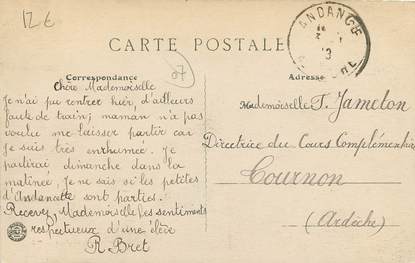 12 €
ANDANCE
CARTE POSTALE
07
Correspondance
Adresse
Chère Mademoiselle
Je n'ai pu rentrer hier, d'ailleurs
faute de train; maman n'a pas
voulu me laisser partir car
je suis très enrhumée. Je
partirai dimanche dans la
matinée. Je ne sais si les petites
d'Andancette sont parties.
Recevez, Mademoiselle, les sentiments
respectueux d'une élève
R. Bret
Mademoiselle T. Jameton
Directrice du Cours Complémentaire
Tournon
(Ardèche)